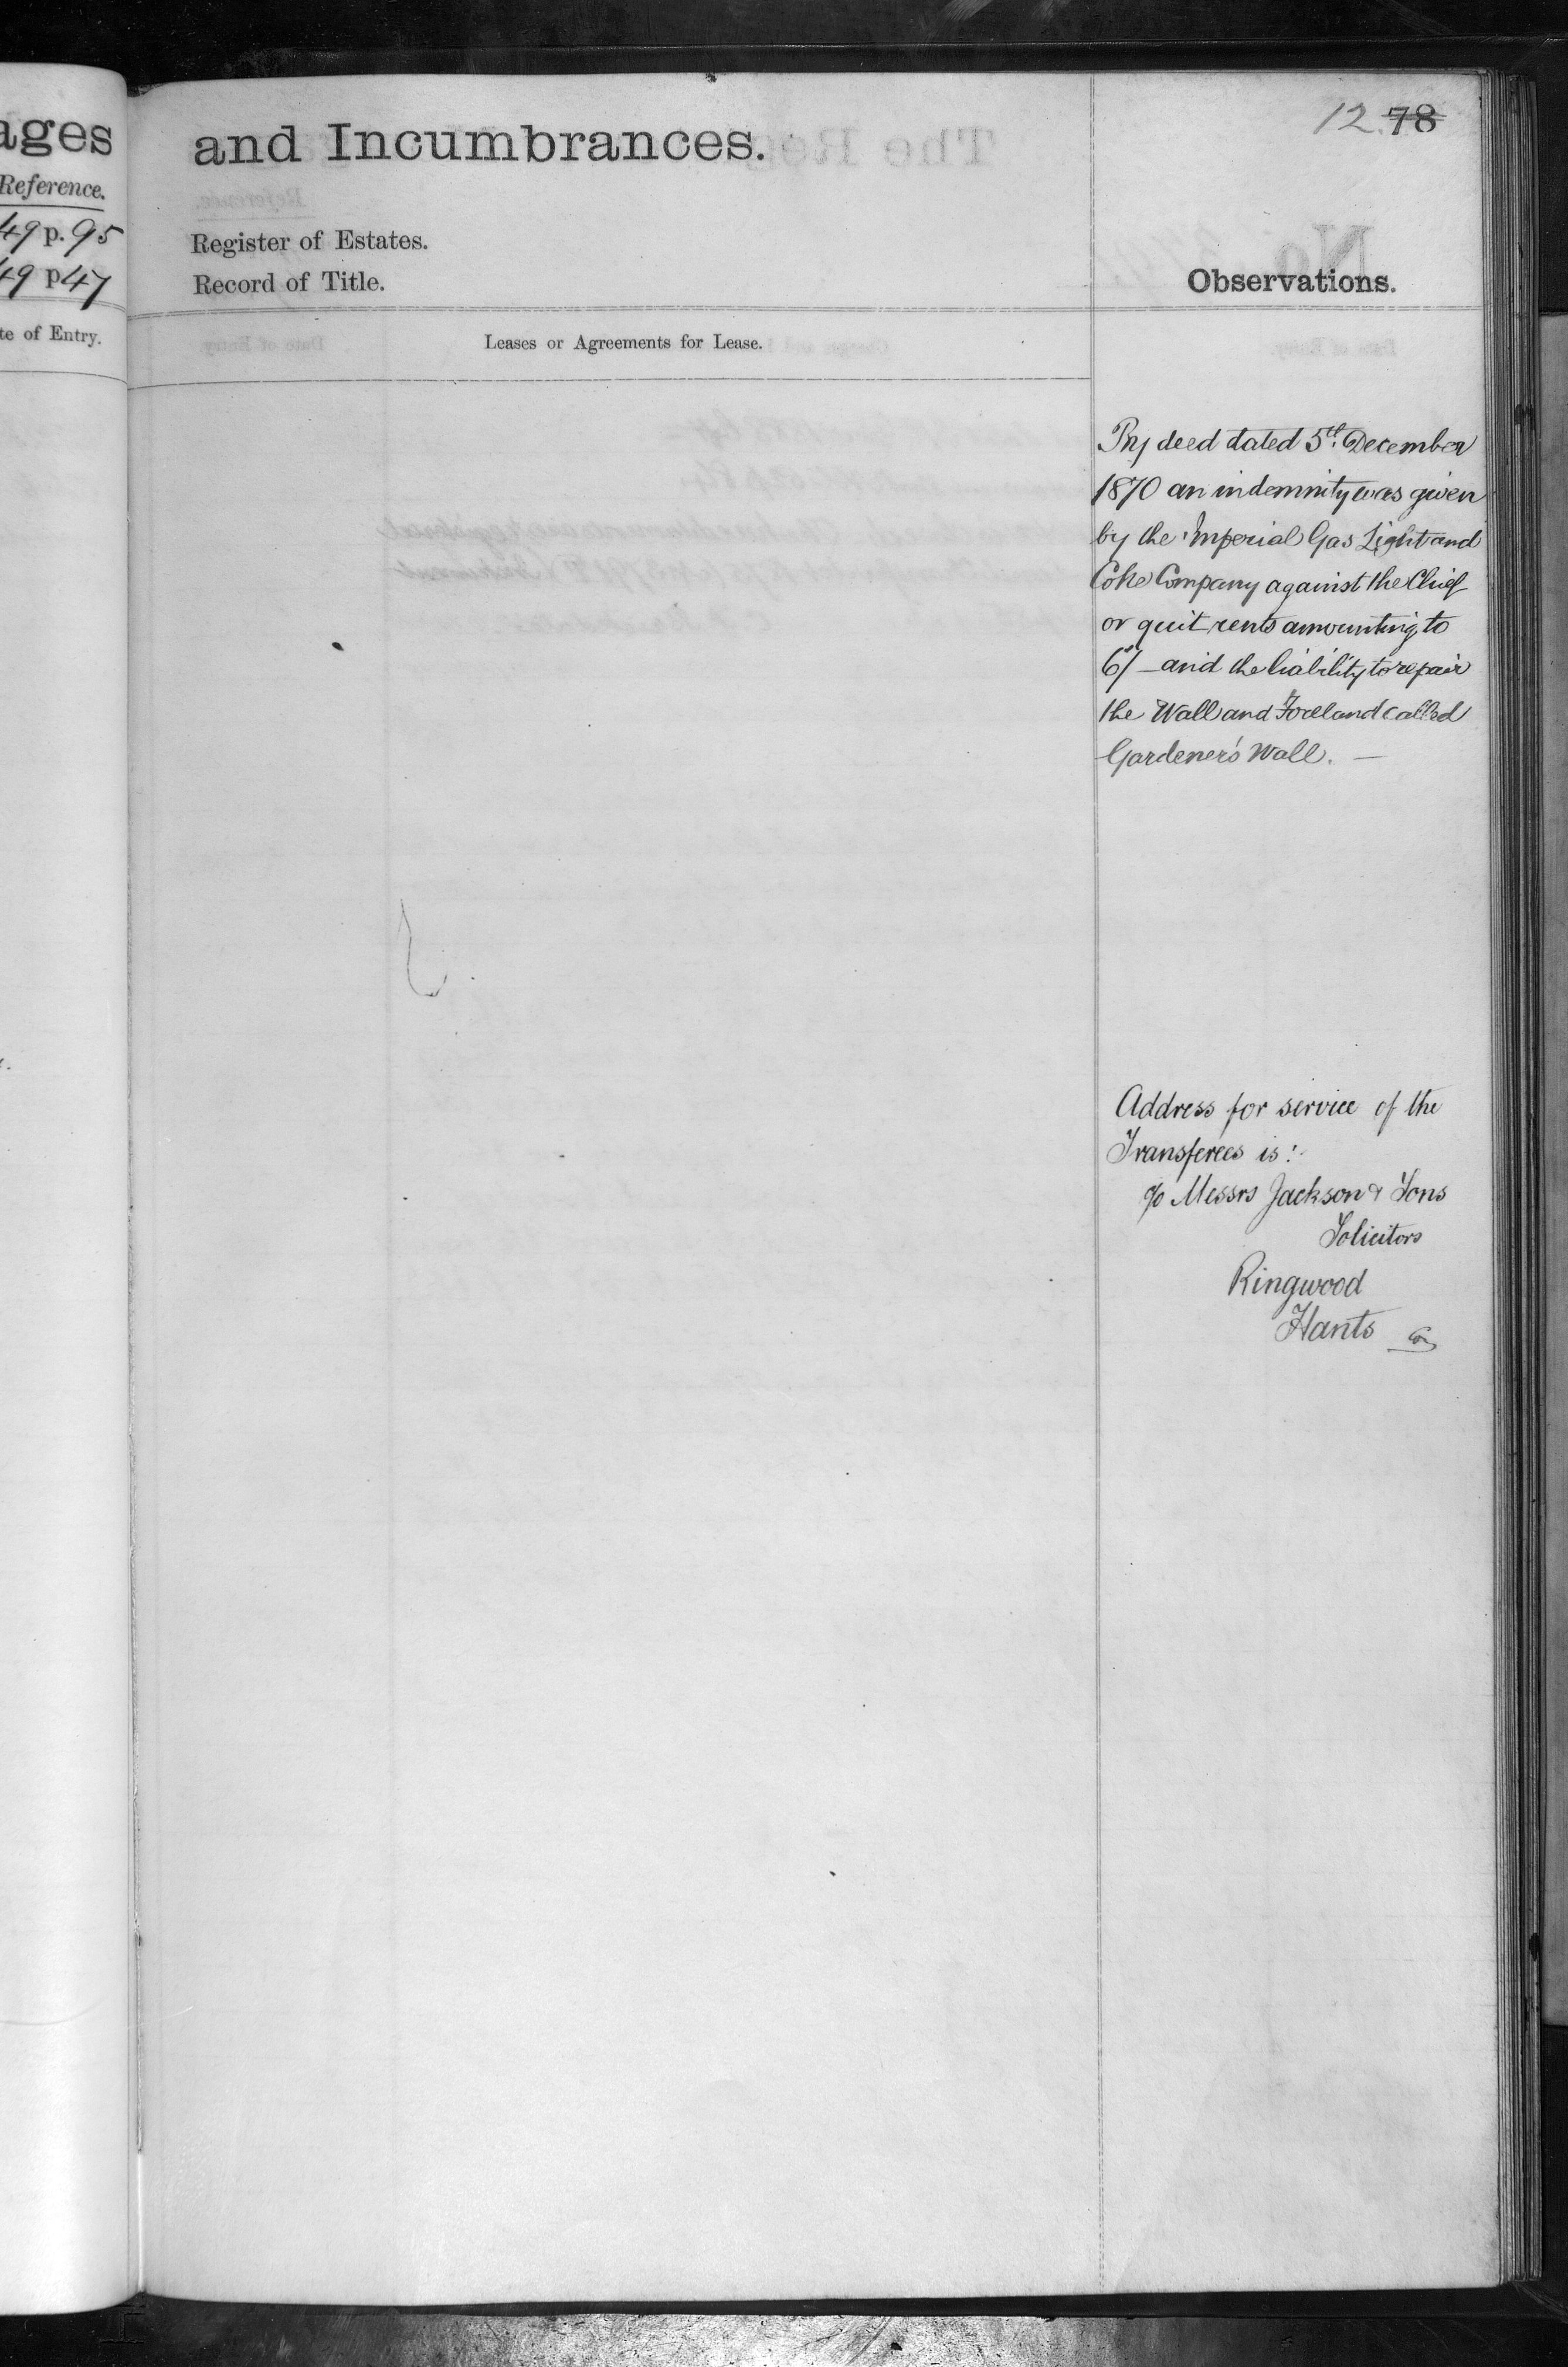 ages
Reference.
49 p. 95
49 p 47
te of Entry.
12. 78
and Incumbrances.
Register of Estates.
Record of Title.
Observations.
Leases or Agreements for Lease.
By deed dated 5th December
1870 an indemnity was given
by the Imperial Gas Light and
Coke Company against the Chief
or quit rents amounting to
6/- and the liability to repair
the Wall and Foreland called
Gardener's Wall. —
Address for service of the
Transferees is:-
c/o Messrs Jackson & Sons
Solicitors
Ringwood
Hants